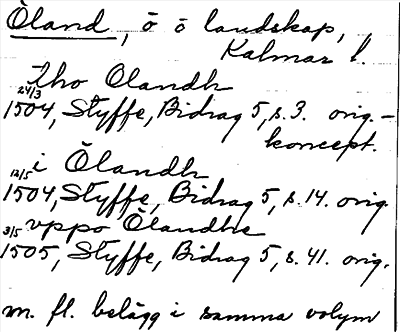 Öland, ö o landskap,
Kalmar l.
tho Olandh
24/3
1504, Styffe, Bidrag 5, s. 3. orig.-
koncept.
i Ölandh
12/5
1504, Styffe, Bidrag 5, s. 14. orig.
vppo Ölandhe
3/5
1505, Styffe, Bidrag 5, s. 41. orig.
m. fl. belägg i samma volym